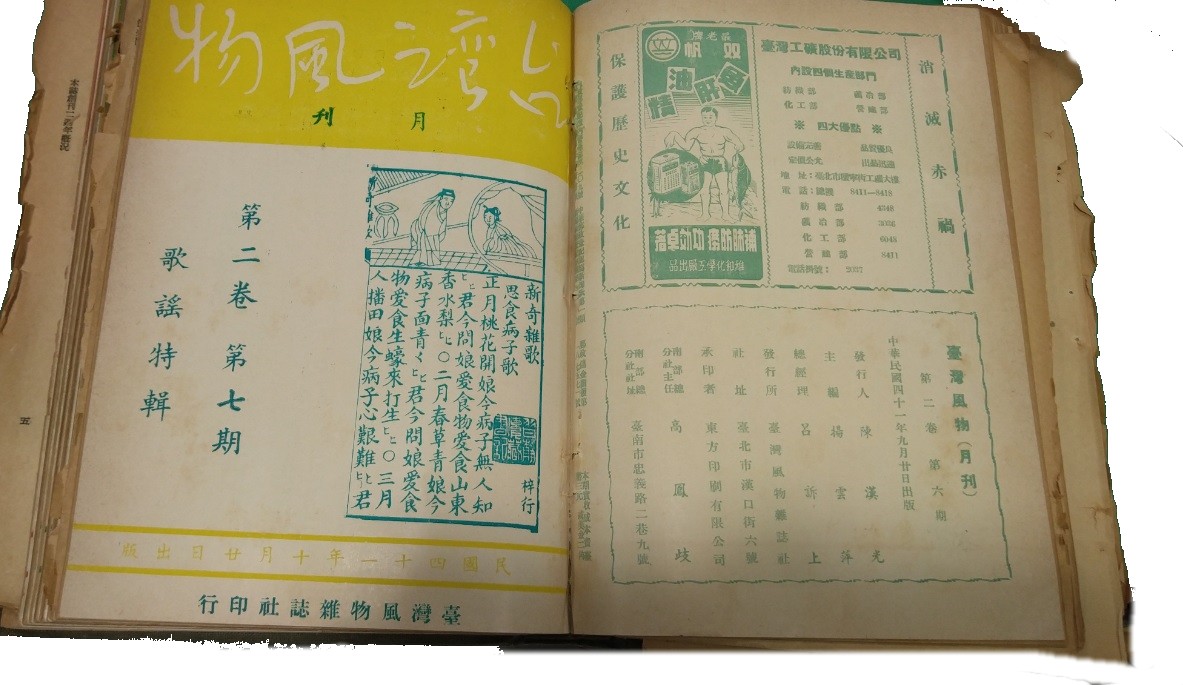 臺灣風物
月刊
第二卷 第七期
歌謠特輯
新奇雜歌
思食病子歌
梓行
正月桃花開娘今病子無人知
君今問娘愛食物愛食山東
香水梨匕匕〇二月春草青娘今
病子面青々匕匕君今問娘愛食
物愛食生蠔來打生匕匕〇三月
人播田娘今病子心艱難匕匕君
民國四十一年十月廿日出版
臺灣風物雜誌社印行
消滅赤禍
臺灣工礦股份有限公司
內設四個生產部門
紡織部
化工部
營繕部
※ 四大優點 ※
設備完善
品質優良
出品迅速
電話:總機 8411—8418
紡織部
化工部 6048
營繕部 8411
雙帆
魚肝油精
保護歷史文化
臺灣風物(月刊)
第二卷 第六期
中華民國四十一年九月廿日出版
發行人 陳漢光
主編 楊雲萍
總經理 呂訴上
發行所 臺灣風物雜誌社
社址 臺北市漢口街六號
承印者 東方印刷有限公司
南部總分社主任 高鳳歧
南部總分社社址 臺南市忠義路二巷九號
五